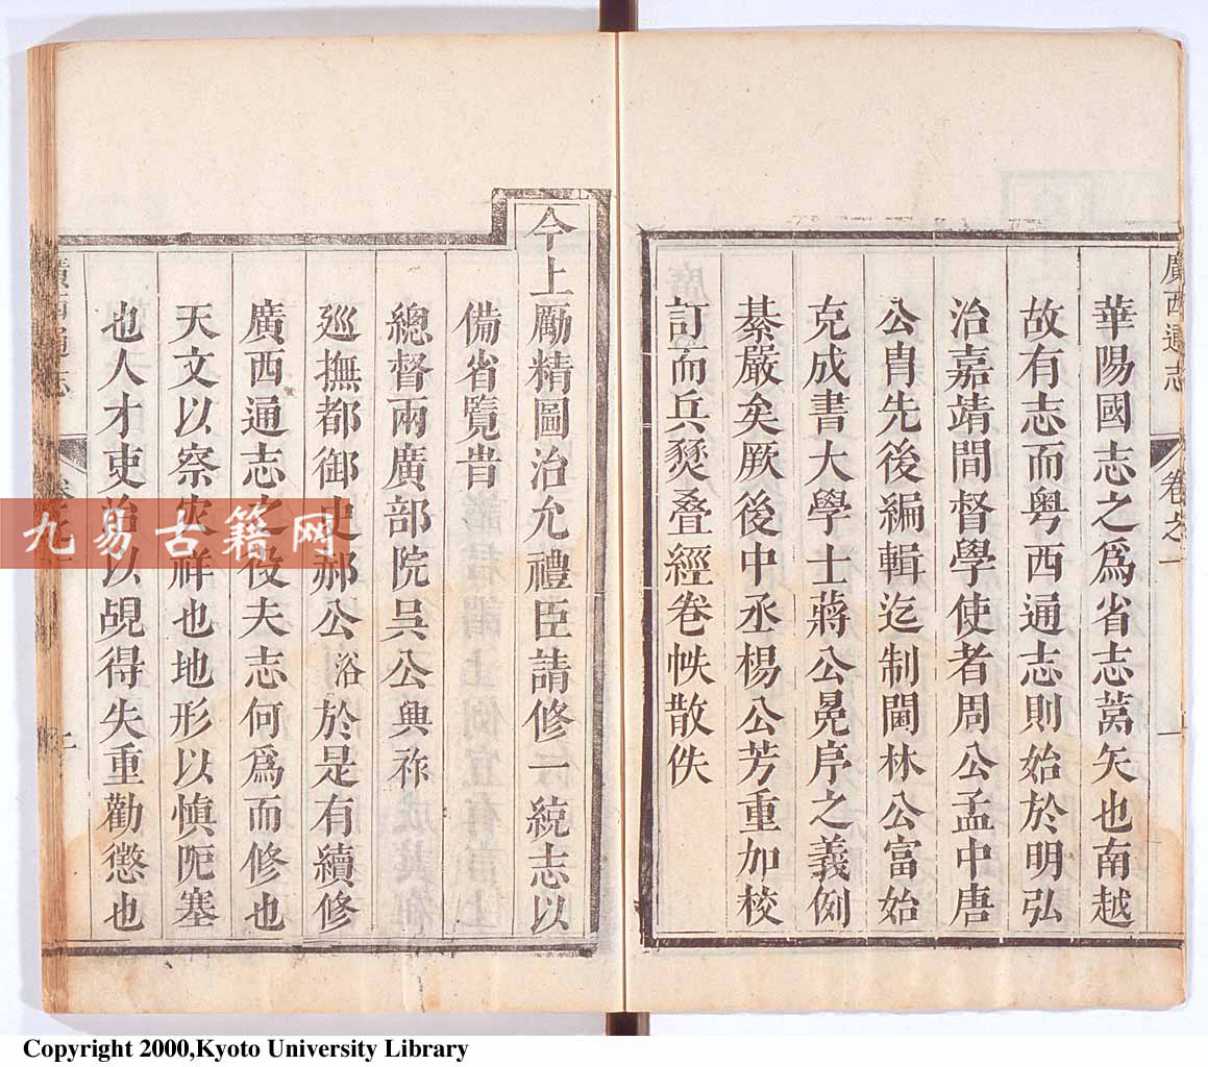 廣西通志
卷之一
一
華陽國志之爲省志蒿矢也南越
故有志而粵西通志則始於明弘
治嘉靖間督學使者周公孟中唐
公胄先後編輯迄制閫林公富始
克成書大學士蔣公冕序之義例
綦嚴矣厥後中丞楊公芳重加校
訂而兵燹叠經卷帙散佚
今上勵精圖治允禮臣請修一統志以
備省覽旹
總督兩廣部院吳公興祚
巡撫都御史郝公浴於是有續修
廣西通志之役夫志何爲而修也
天文以察災祥也地形以慎阨塞
也人才吏治以覘得失重勸懲也
廣西通志
九易古籍网
Copyright 2000,Kyoto University Library